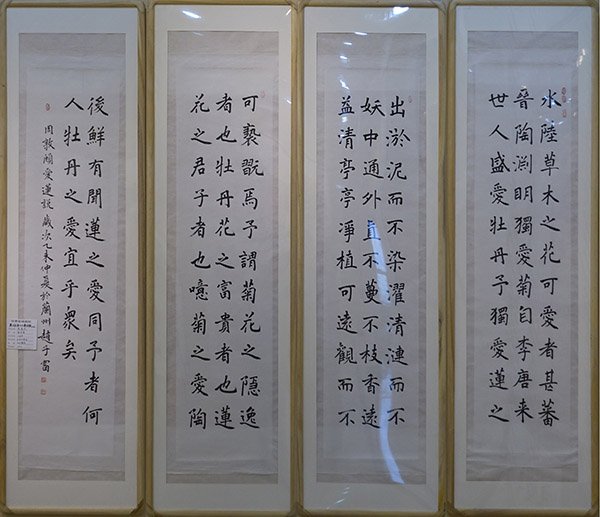 水陸草木之花可愛者甚蕃
晉陶渊明獨愛菊自李唐来
世人盛愛牡丹予獨愛蓮之
出淤泥而不染濯清漣而不
妖中通外直不蔓不枝香遠
益清亭亭淨植可遠觀而不
可褻翫焉予謂菊花之隱逸
者也牡丹花之富貴者也蓮
花之君子者也噫菊之愛陶
後鮮有聞蓮之愛同予者何
人牡丹之愛宜乎眾矣
周敦頤愛蓮説歲次乙未仲夏於蘭州趙子富